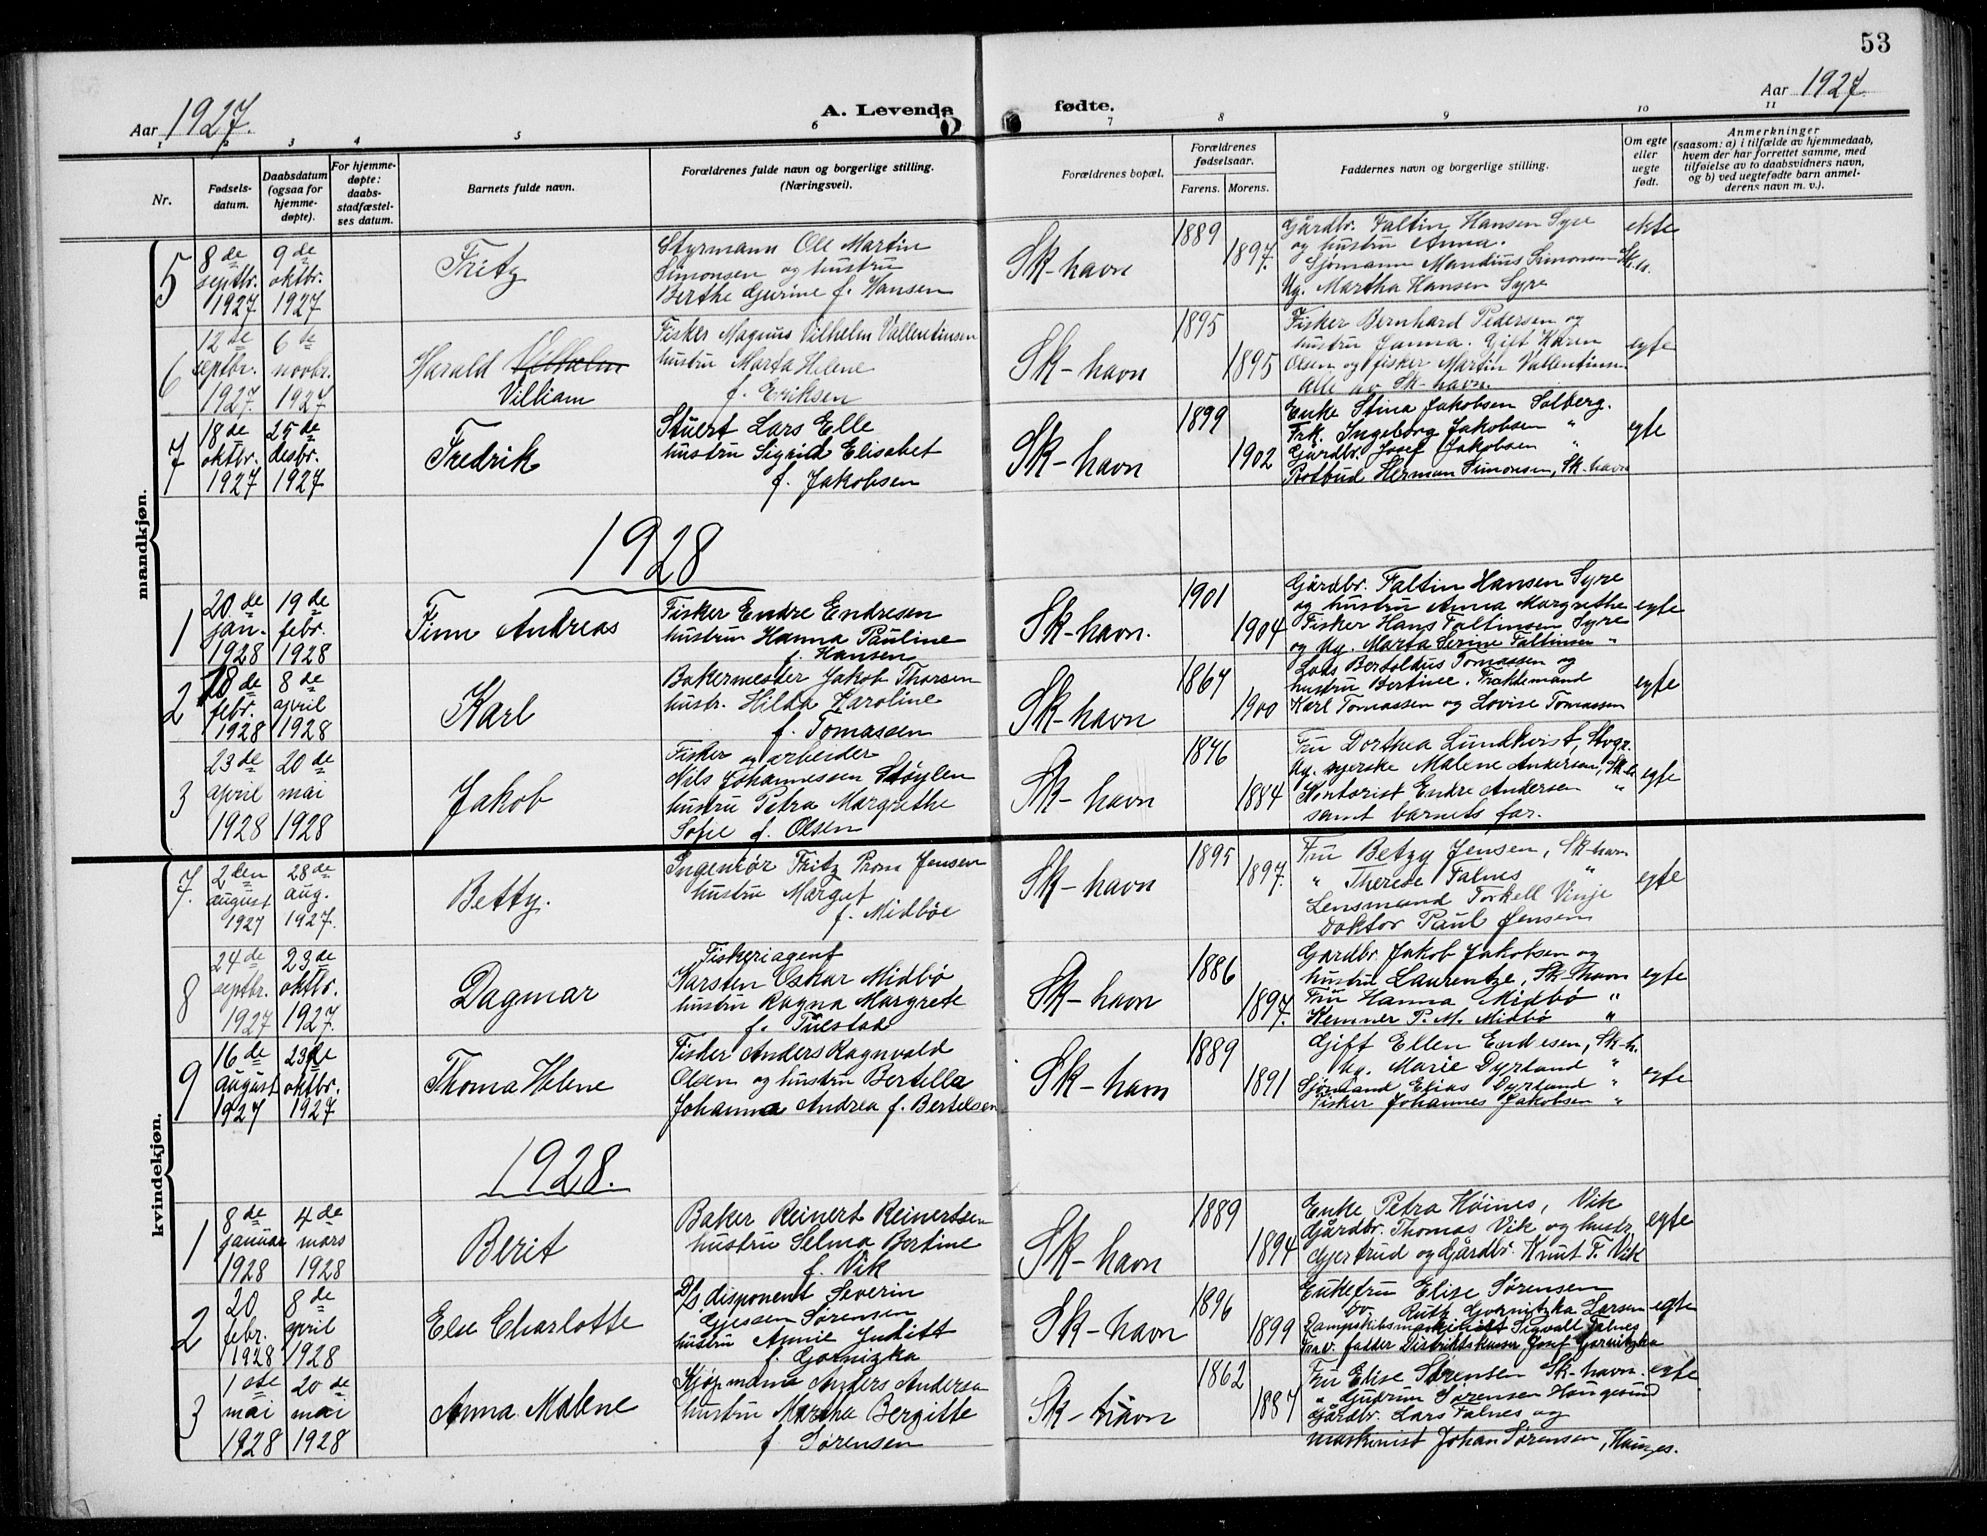 53
Aar 1927.
A. Levende fødte.
Aar 1927.
1 2 3 4 5 6 7 8 9 10 11
Nr.
Fødsels-
datum.
Daabsdatum
(ogsaa for
hjemme-
døpte).
For hjemme-
døpte:
daabs-
stadfæstel-
ses datum.
Barnets fulde navn.
Forældrenes fulde navn og borgerlige stilling.
(Næringsvei).
Forældrenes bopæl.
Forældrenes
fødselsaar.
Farens. Morens.
Faddernes navn og borgerlige stilling.
Om egte
eller
uegte
født.
Anmerkninger
(saasom: a) i tilfælde av hjemmedaab,
hvem der har forrettet samme, med
tilføielse av to daabsvidners navn,
og b) ved uegtefødte barn anmel-
derens navn m. v.).
mandkjøn.
5
8 de
septbr.
1927
9 de
oktbr.
1927
Fritz
Styrmann Ole Martin
Simonsen og hustru
Berthe Gurine f. Hansen
Sk-havn
1889
1897.
Gårdbr. Faltin Hansen Syre
og hustru Anna.
Sjømann Mandius Simonsen Sk-h.
Ug. Martha Hansen Syre
ekte
6
12 de
septbr.
1927.
6 te
novbr.
1927
Harald Vilhelm
Villiam
Fisker Magnus Vilhelm Vallentinsen
hustru Marta Helene
f. Eriksen
Sk-havn
1895
1895
Fisker Bernhard Pedersen og
hustru Janna. Gift Karen
Olsen og fisker Martin Vallentinsen
Alle av Sk-havn.
egte
7
18 de
oktbr.
1927
25 de
desbr.
1927
Fredrik
Stuert Lars Elle
hustru Sigrid Elisabet
f. Jakobsen
Sk-havn
1899
1902
Enke Stina Jakobsen Solberg.
Frk. Ingeborg Jakobsen "
Gårdbr. Josef Jakobsen "
Postbud Herman Simonsen, Sk-havn
egte
1928
1
20 de
jan.
1928
19 de
febr.
1928
Finn Andreas
Fisker Endre Endresen
hustru Hanna Pauline
f. Hansen
Sk-havn.
1901
1904
Gårdbr. Faltin Hansen Syre
og hustru Anna Margrethe
Fisker Hans Faltinsen Syre
og Ug. Marta Serine Faltinsen "
egte
2
18 de
febr.
1928
8 de
april
1928
Karl
Bakermester Jakob Thorsen
hustr. Hilda Karoline
f. Tomassen
Sk-havn
1867
1900
Lods Bertoldus Tomassen og
hustru Bertine. Fraktemand
Karl Tomassen og Lovise Tomassen
egte
3
23 de
april
1928
20 de
mai
1928
Jakob
Fisker og arbeider
Nils Johannessen Støylen
hustru Petra Margrethe
Sofie f. Olsen
Sk-havn
1876
1884
Fru Dorthea Lundkvist,
Ug. syerske Malene Andersen, Sk-h.
Kontorist Endre Andersen "
samt barnets far.
egte
kvindekjøn.
7.
2 den
august
1927
28 de
aug.
1927.
Betty.
Ingeniør Fritz Prom Jensen
hustru Margit
f. Midbøe
Sk-havn
1895
1897.
Fru Betzy Jensen, Sk-havn
" Therese Falnes "
Lensmand Torkell Vinje
Doktor Paul Jensen
egte
8
24 de
septbr.
1927
23 de
oktbr.
1927.
Dagmar
Fiskeriagent
Karsten Oskar Midbø
hustru Ragna Margrete
f. Tuestad
Sk-havn
1886
1897.
Gardbr. Jakob Jakobsen og
hustru Laurentze, Sk-havn
Fru Hanna Midbø "
Kemner P. M. Midbø "
egte
9
16 de
august
1927
23 de
oktbr.
1927.
Thoma Helene
Fisker Anders Ragnvald
Olsen og hustru Bertella
Johanna Andrea f. Bertelsen
Sk-havn
1889
1891
Gift Ellen Endresen, Sk-h.
Ug. Marie Dyrland "
Sjømand Elias Dyrland "
Fisker Johannes Jakobsen "
egte
1928.
1
8 de
januar
1928
4 de
mars
1928
Berit
Baker Reinert Reinertsen
hustru Selma Bertine
f. Vik
Sk-havn
1889
1894
Enke Petra Høines, Vik
Gårdbr. Thomas Vik og hustr.
Gjertrud og Gårdbr. Knut F. Vik
egte
2
20
febr.
1928
8 de
april
1928
Else Charlotte
D/s disponent Severin
Gjessen Sørensen
hustru Annie Juditt
f. Gornizka
Sk-havn
1896
1899
Enkefru Elise Sørensen
Do Ruth Gornitzka Larsen
Dampskibsmaskinist Sigvall Falnes
fadder Distriktskasser Josef Gornitzka
egte
3
1 ste
mai
1928
20 de
mai
1928
Anna Malene
Kjøpmann Anders Andersen
hustru Martha Bergitte
f. Sørensen
Sk-havn
1862
1887
Fru Elise Sørensen Sk-havn.
" Gudrun Sørensen Haugesund
Gårdbr. Lars Falnes og
maskinist Johan Sørensen, Hauges.
egte